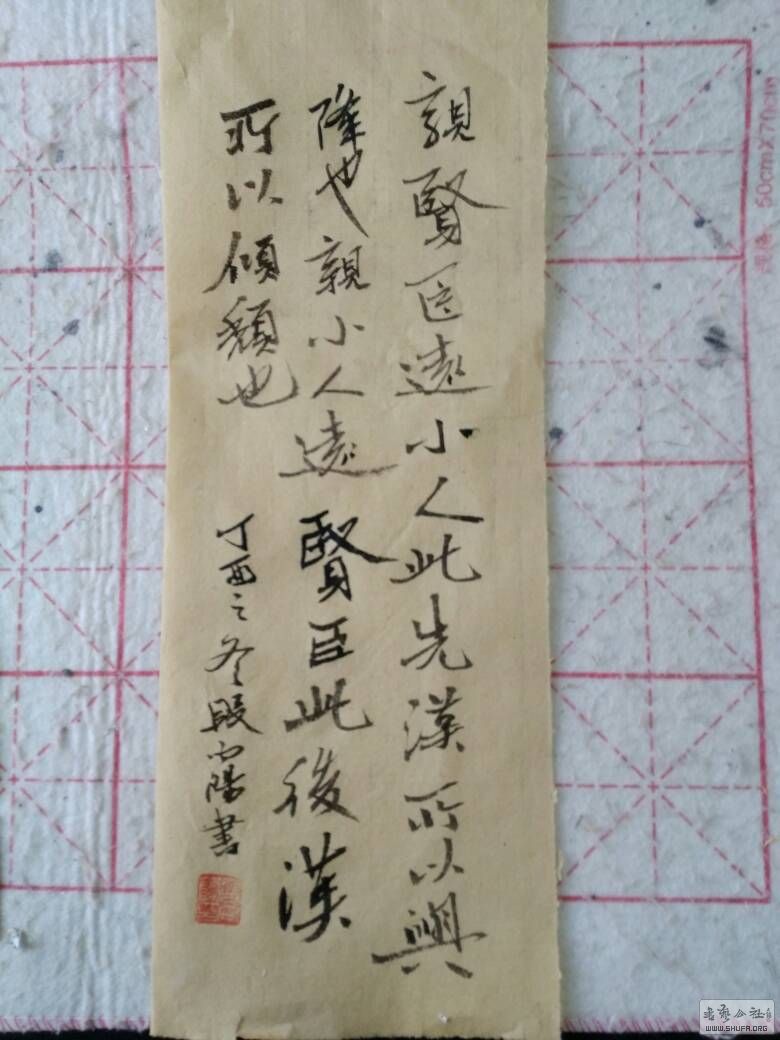 親賢臣遠小人此先漢所以興
隆也親小人遠賢臣此後漢
所以傾頹也
丁酉之冬段小陽書
50cmX70cm
书艺公社
WWW.SHUFA.ORG